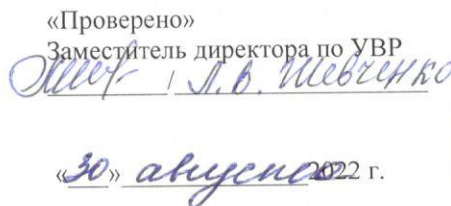 «Проверено»
Заместитель директора по УВР
/ Л.В. Шевченко
«30» августа 2022 г.